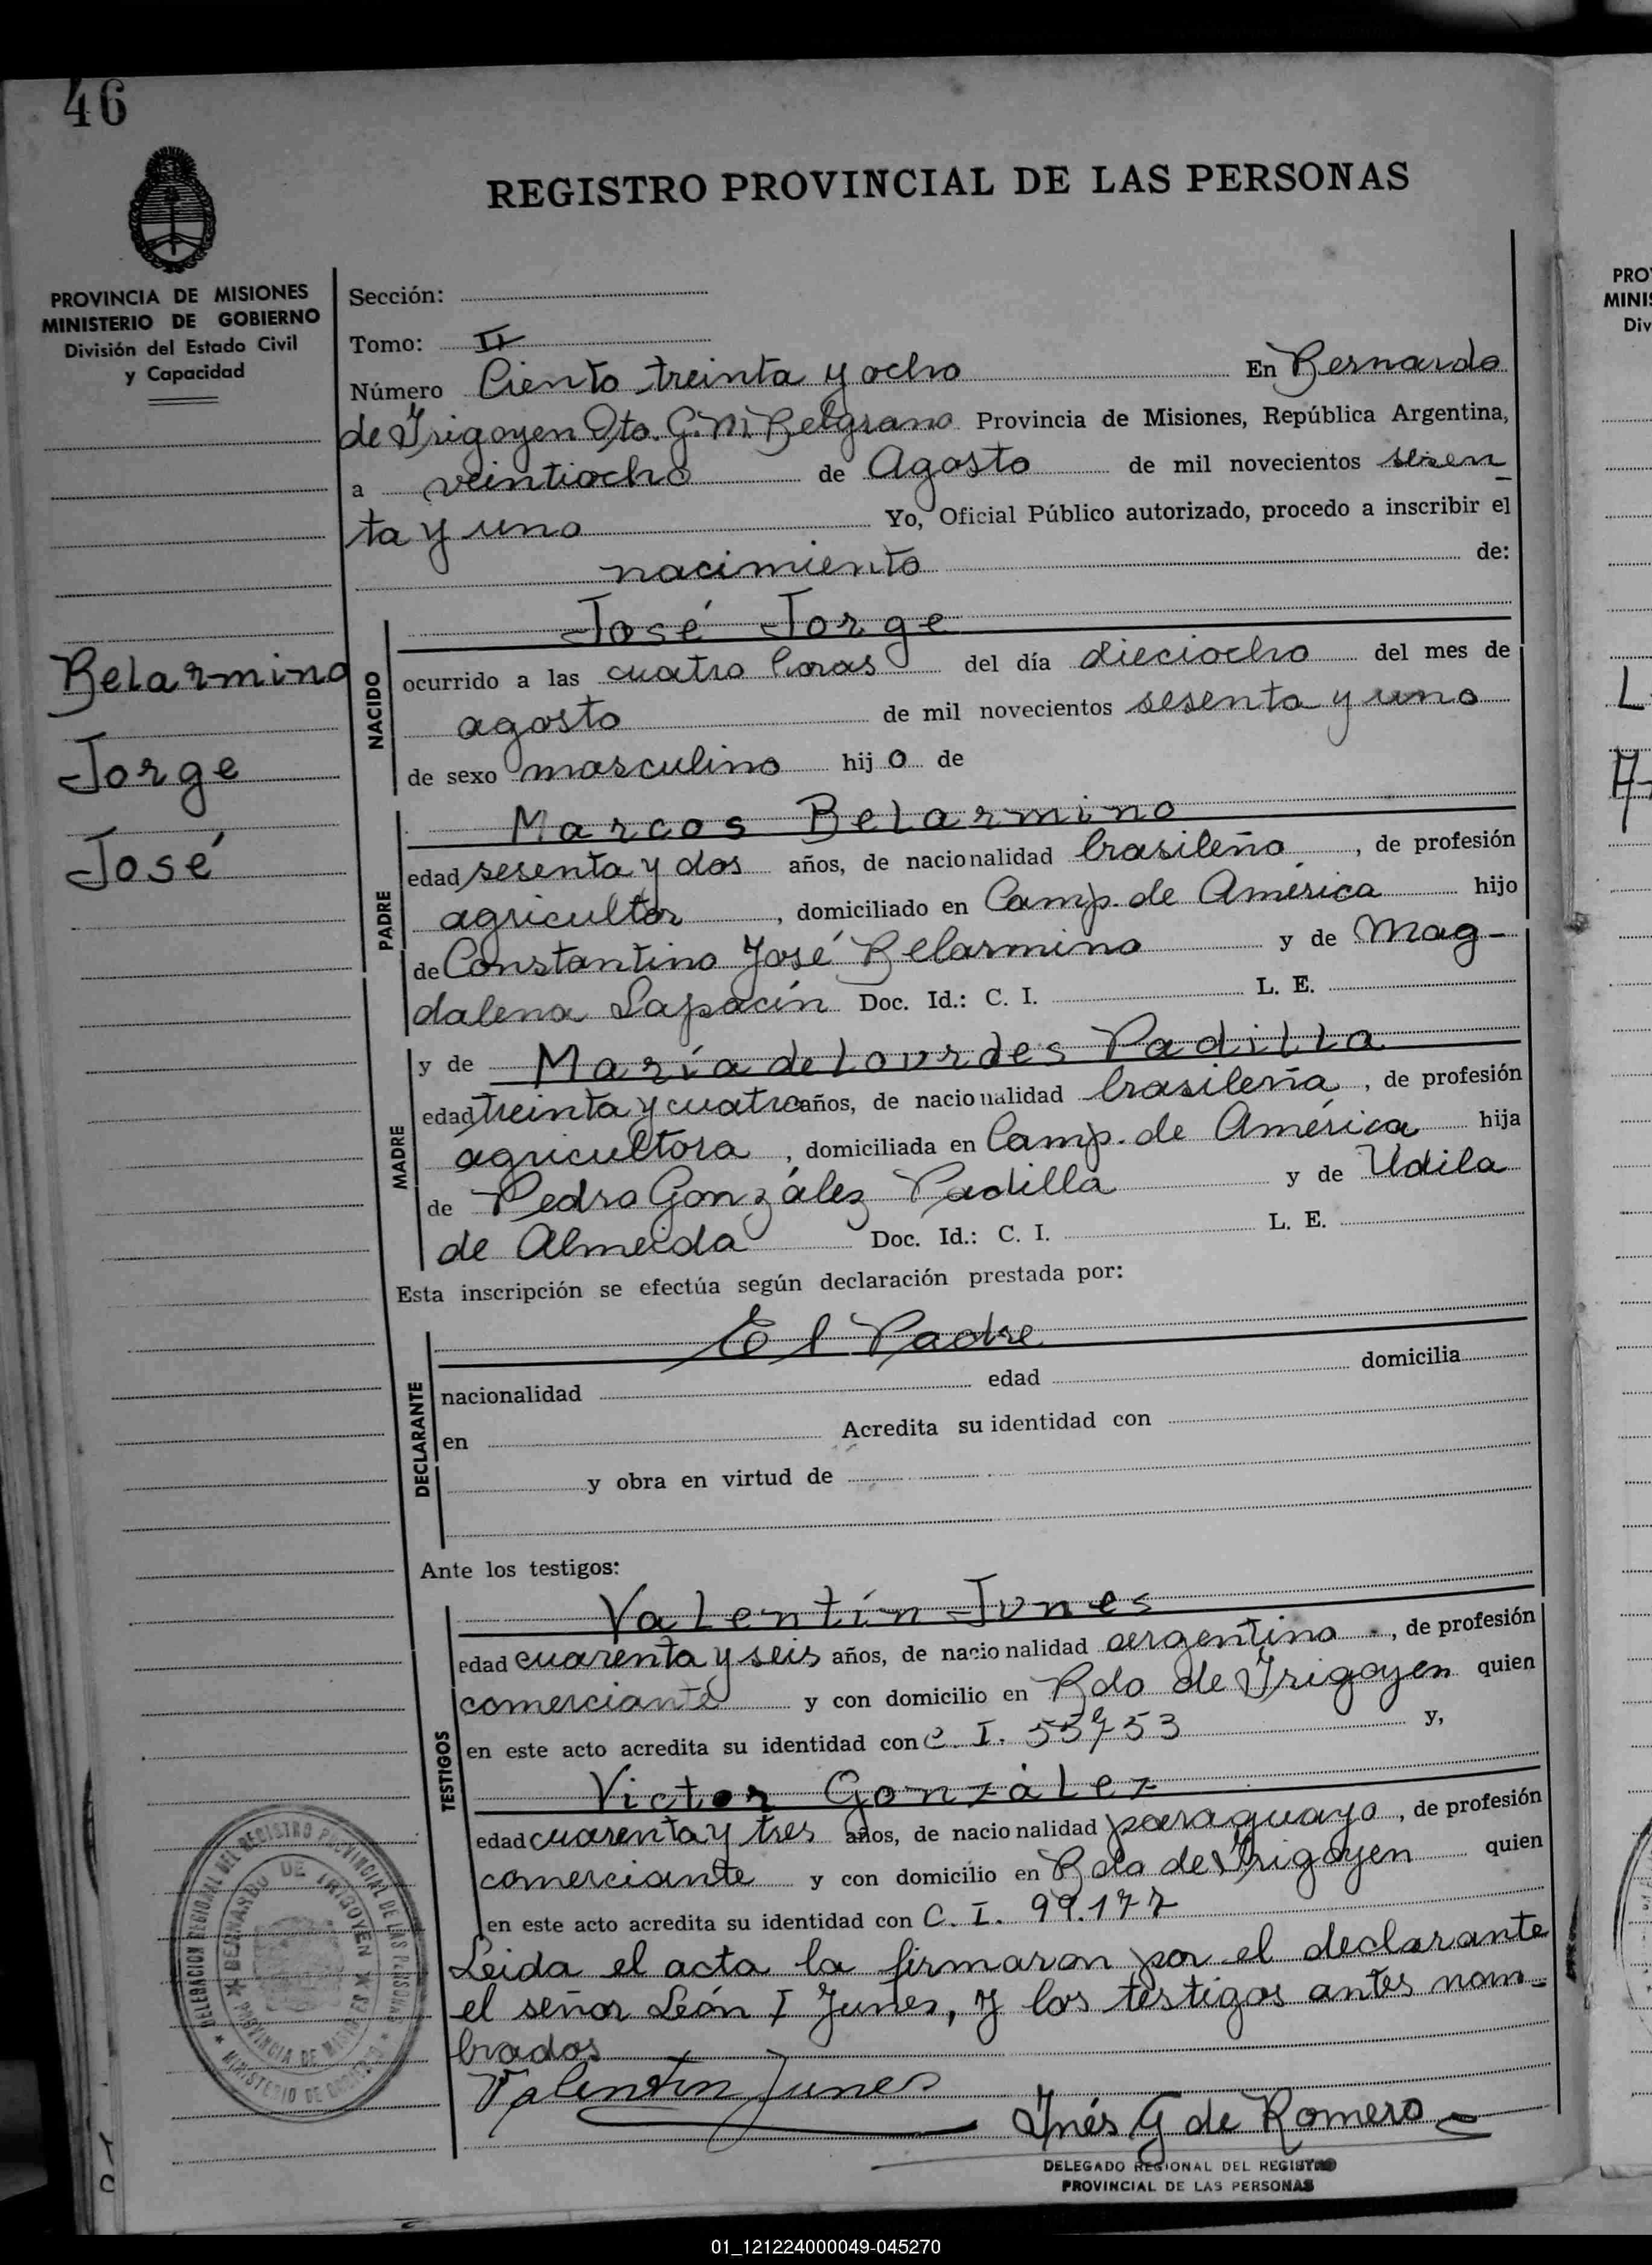 46
REGISTRO PROVINCIAL DE LAS PERSONAS
PROVINCIA DE MISIONES
MINISTERIO DE GOBIERNO
División del Estado Civil
y Capacidad
Belarmino
Jorge
José
Sección:
Tomo: II
Número Ciento treinta y ocho En Bernardo
de Irigoyen Dto. G.M. Belgrano Provincia de Misiones, República Argentina,
a veintiocho de Agosto de mil novecientos sesen
ta y uno Yo, Oficial Público autorizado, procedo a inscribir el
nacimiento de:
NACIDO
José Jorge
ocurrido a las cuatro horas del día dieciocho del mes de
agosto de mil novecientos sesenta y uno
de sexo masculino hijo de
PADRE
Marcos Belarmino
edad sesenta y dos años, de nacionalidad brasileña, de profesión
agricultor, domiciliado en Camp. de América hijo
de Constantino José Belarmino y de Mag-
dalena Doc. Id.: C. I. L. E.
MADRE
y de María de Lourdes Padilla
edad treinta y cuatro años, de nacionalidad brasileña, de profesión
agricultora, domiciliada en Camp. de América hija
de Pedro González Padilla y de Udila
de Almeida Doc. Id.: C. I. L. E.
Esta inscripción se efectúa según declaración prestada por:
DECLARANTE
El Padre
nacionalidad edad domicilia
en Acredita su identidad con
y obra en virtud de
Ante los testigos:
TESTIGOS
Valentín Junes
edad cuarenta y seis años, de nacionalidad argentina, de profesión
comerciante y con domicilio en Bdo de Irigoyen quien
en este acto acredita su identidad con C. I. y,
Victor González
edad cuarenta y tres años, de nacionalidad paraguaya, de profesión
comerciante y con domicilio en Bdo de Irigoyen quien
en este acto acredita su identidad con C. I. 99.177
Leida el acta la firmaron por el declarante
el señor León I Junes, y los testigos antes nom-
brados
Valentín Junes
Inés G de Romero
DELEGADO REGIONAL DEL REGISTRO
PROVINCIAL DE LAS PERSONAS
DELEGACION REGIONAL DEL REGISTRO PROVINCIAL DE LAS PERSONAS
MINISTERIO DE GOBIERNO
BERNARDO DE IRIGOYEN
PROVINCIA DE MISIONES
PRO
MINIS
Div
01_121224000049-045270